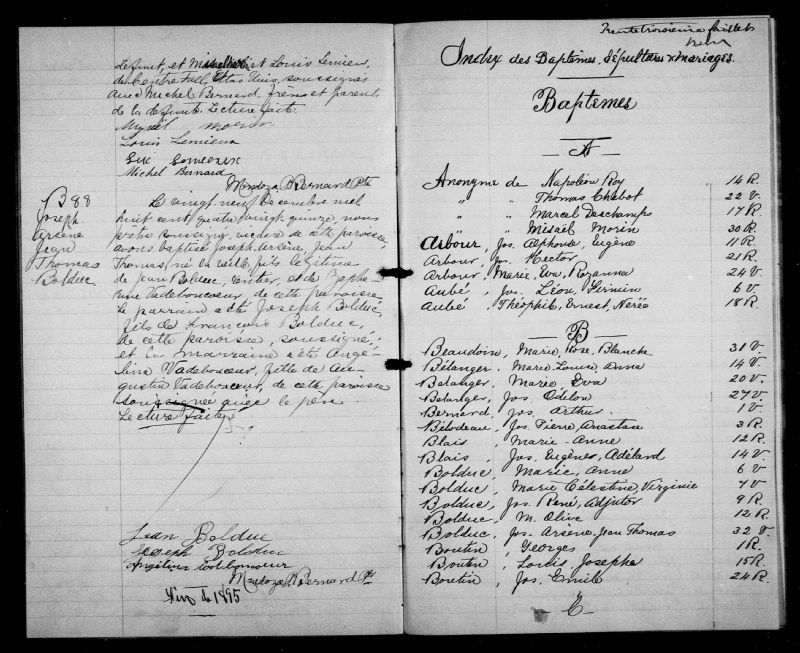 défunt, et Michel et Louis Lemieux,
de Centre Fall, Etas Unis, soussignés
avec Michel Bernard, frère et parents
de la défunte. Lecture faite.
Louis Lemieux
Luc Lemieux
Michel Bernard
Mendoza Bernard Ptre
B 88
Joseph
Arsène
Jean
Thomas
Bolduc
Le vingt neuf Décembre mil
huit cent quatre vingt quinze, nous
prêtre soussigné, vicaire de cette paroisse,
avons baptisé Joseph, Arsène, Jean
Thomas, né la veille, fils légitime
de Jean Bolduc, rentier, et de Zéphi-
rine Vadeboncoeur, de cette paroisse.
Le parrain a été Joseph Bolduc,
fils de François Bolduc,
de cette paroisse, soussigné,
et la marraine a été Angé-
lina Vadeboncoeur, fille de Au-
gustin Vadeboncoeur, de cette paroisse
soussignée avec le père
Lecture faite
Jean Bolduc
Joseph Bolduc
Angélina
Mendoza Bernard Ptr
Fin de 1895
Trente troisième feuillet
Index des Baptêmes, Sépultures & Mariages.
Baptêmes
A
Anonyme de Napoléon Roy 14 R.
" " Thomas Chabot 22 V.
" " Marcel Deschamps 17 R.
" " Misaïl Morin 30 R.
Arbour, Jos. Alphonse, Eugène 11 R.
Arbour, Jos. Hector 21 R.
Arbour, Marie, Eva, Rozanna 24 V.
Aubé, Jos. Léon, Firmin 6 V.
Aubé, Théophile, Ernest, Nérée 18 R.
B
Beaudoin, Marie, Rose, Blanche 31 V.
Bélanger, Marie, Louise, Anna 14 V.
Belanger, Marie, Eva 20 V.
Belanger, Jos. Odilon 27 V.
Bernard, Jos. Arthur. 1 V.
Bilodeau, Jos. Pierre, Anastase 3 R.
Blais, Marie-Anne 12 R.
Blais, Jos. Eugène, Adélard 14 V.
Bolduc, Marie, Anne 6 V.
Bolduc, Marie Célestine, Virginie 7 V.
Bolduc, Jos. René, Adjutor 9 R.
Bolduc, M. Olive 12 R.
Bolduc, Jos. Arsène, Jean Thomas 32 V.
Boutin, Georges 1 R.
Boutin, Louis Josephe 15 R.
Boutin, Jos. Emile 24 R.
C